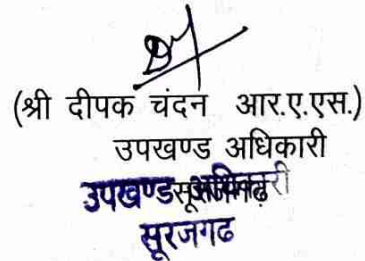 (श्री दीपक चंदन आर.ए.एस.)
उपखण्ड अधिकारी
सूरजगढ़
उपखण्ड अधिकारी
सूरजगढ